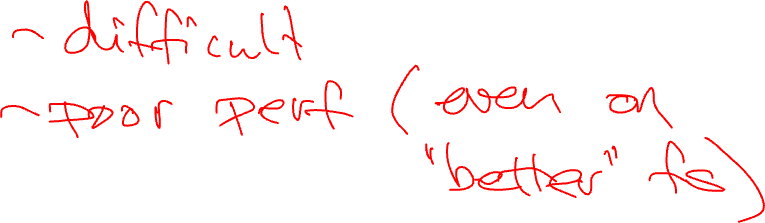 ~ difficult
~ poor perf (even on
"better" fs)